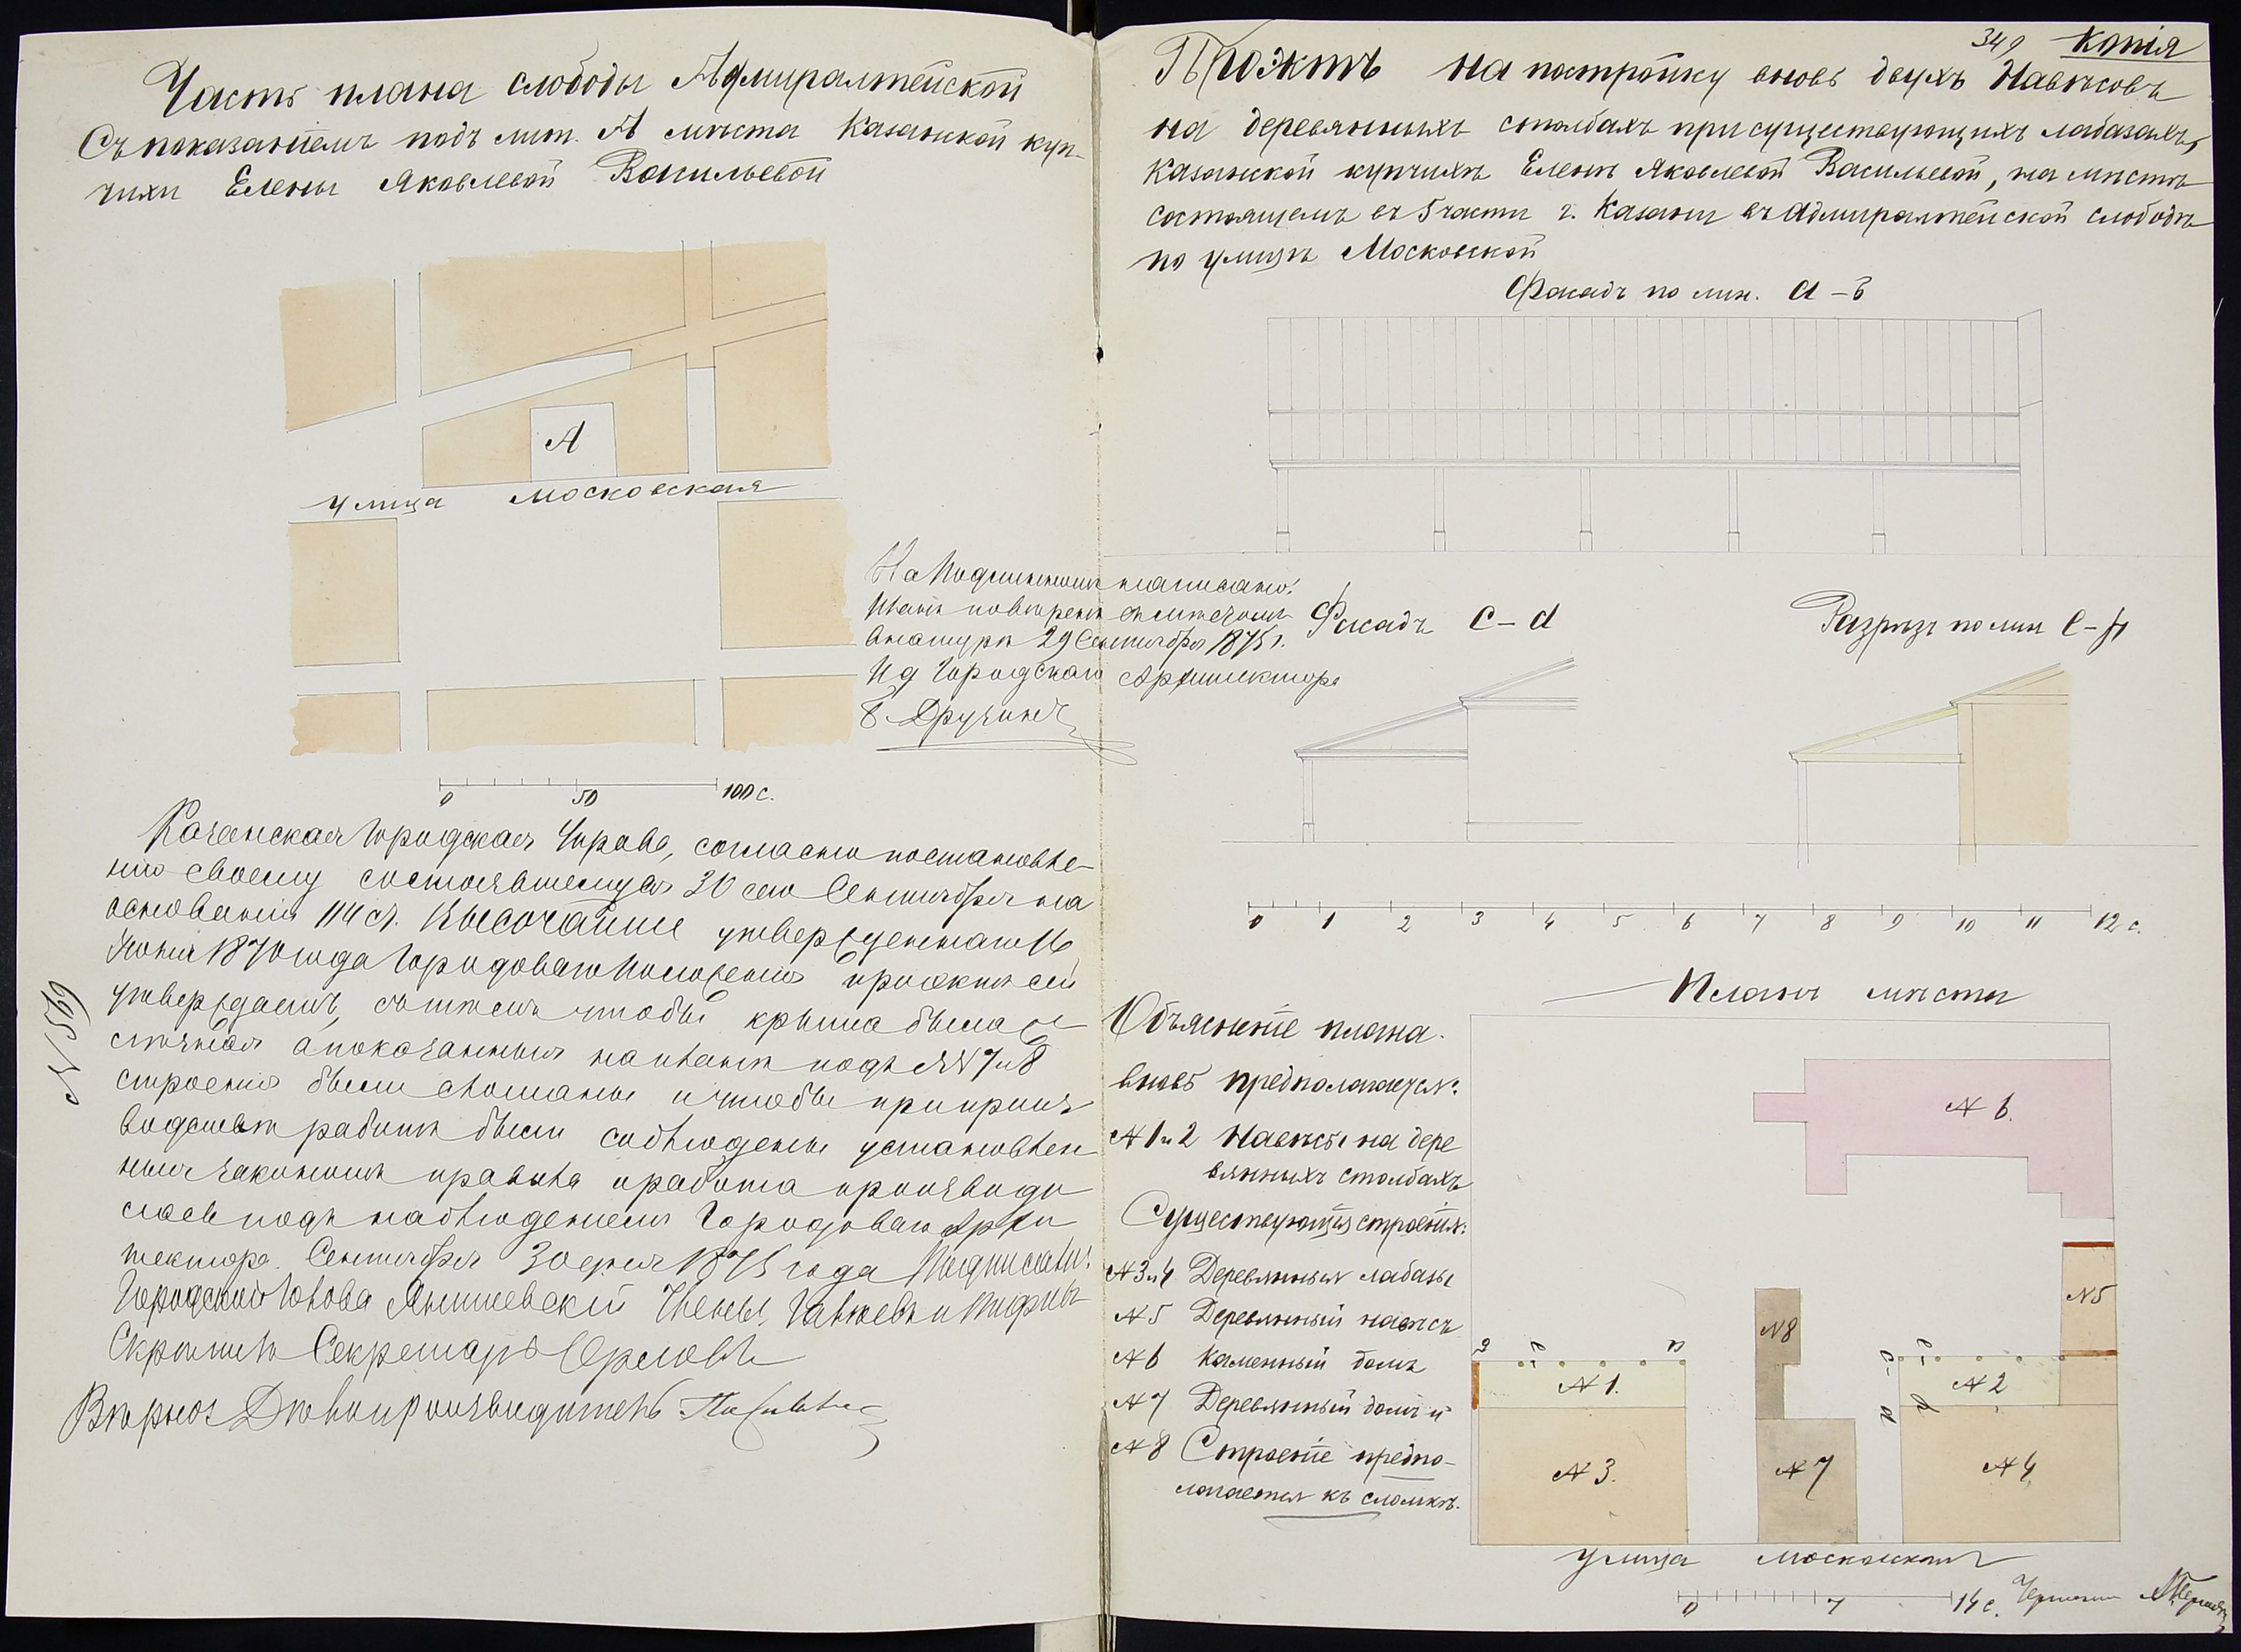 Часть плана слободы Адмиралтейской
Съ показаніемъ подъ лит. А мѣста Казанской куп-
чихи Елены Яковлевой Васильевой
А
Улица Московская
0 50 100 с.
На подлинномъ написано:
Планъ повѣренъ съ мѣстомъ
въ натурѣ 29 Сентября 1875 г.
И д Городскаго Архитектора
Казанская Городская Управа, согласно постановле-
нію своему состоявшемуся 30 сего Сентября на
основаніи 114 ст. Высочайше утвержденнаго 16
Іюня 1870 года Городоваго Положенія проектъ сей
утверждаетъ, съ тѣмъ чтобы крыша была
а показанныя на планѣ подъ №№ 7 и 8
строенія были сломаны и чтобы при произ
водствѣ работъ были соблюдены установлен
ныя закономъ правила и работа производи
лась подъ наблюденіемъ Городоваго Архи
тектора. Сентября 30 дня 1875 года Подписали:
Городской Голова Янишевскій Члены,
Скрѣпилъ Секретарь Орловъ
Вѣрно: Дѣлопроизводитель
№ 569
349 Копія
Проэктъ на постройку вновь двухъ Навѣсовъ
на деревянныхъ столбахъ при существующихъ лабазахъ,
Казанской купчихѣ Еленѣ Яковлевой Васильевой, на мѣстѣ
состоящемъ въ 5 части г. Казани въ Адмиралтейской слободѣ
по улицѣ Московской
Фасадъ по лин. a – b
Фасадъ c – d
Разрѣзъ по лин e – f
0 1 2 3 4 5 6 7 8 9 10 11 12 с.
Планъ мѣста
Объясненіе плана.
Вновь предполагается:
№ 1 и 2 Навѣсы на дере
вянныхъ столбахъ
Существующія строенія:
№ 3 и 4 Деревянныя лабазы
№ 5 Деревянный навѣсъ
№ 6 Каменный домъ
№ 7 Деревянный домъ и
№ 8 Строеніе предпо-
лагается къ сломкѣ.
№ 6.
№ 5
№ 8
№ 1.
№ 2
№ 3.
№ 7
№ 4
улица Московская
0 7 14 с.
Чертилъ